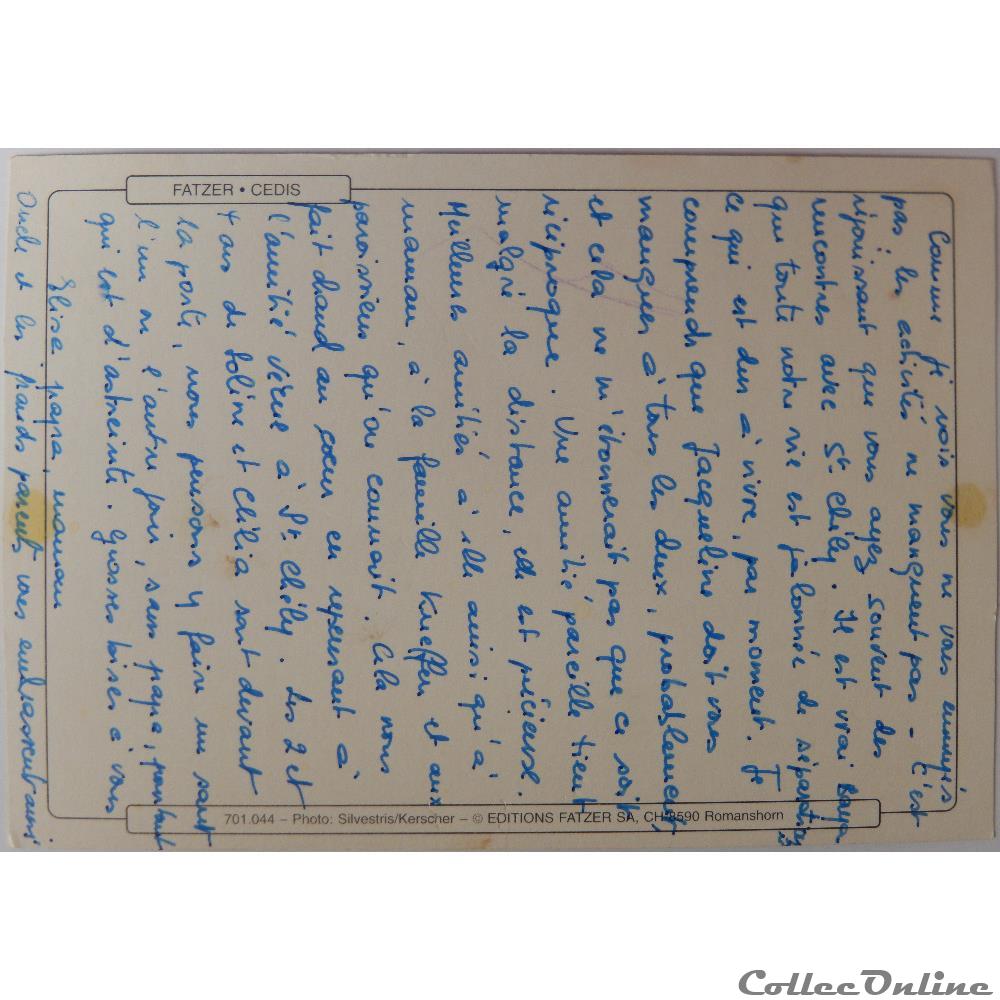 FATZER • CEDIS
Comme je vois vous ne vous ennuyés
pas, les activités ne manquent pas - C'est
réjouissant que vous ayez souvent des
rencontres avec St. Chély. Il est vrai
que toute notre vie est jalonnée de séparations
ce qui est dur à vivre, par moment. Je
comprends que Jacqueline doit vous
manquer à tous les deux, probablement,
et cela ne m'étonnerait pas que ce soit
réciproque. Une amitié pareille tient
malgré la distance, elle est précieuse.
Meilleures amitiés à elle ainsi qu'à
maman, à la famille Kieffer et aux
paroissiens qu'on connait. Cela nous
fait chaud au coeur en repensant à
l'amitié vécue à St. Chély. Les 2 et
4 ans de Soline et Clélia sont devant
la porte, nous pensons y faire un saut
l'un ou l'autre jour, sans papa, pourtant
qui est d'astreinte. Grosses bises à vous
Elise papa, maman
Oncle et les grands parents vous embrassent aussi
701.044 – Photo: Silvestris/Kerscher – © EDITIONS FATZER SA, CH-8590 Romanshorn
CollecOnline